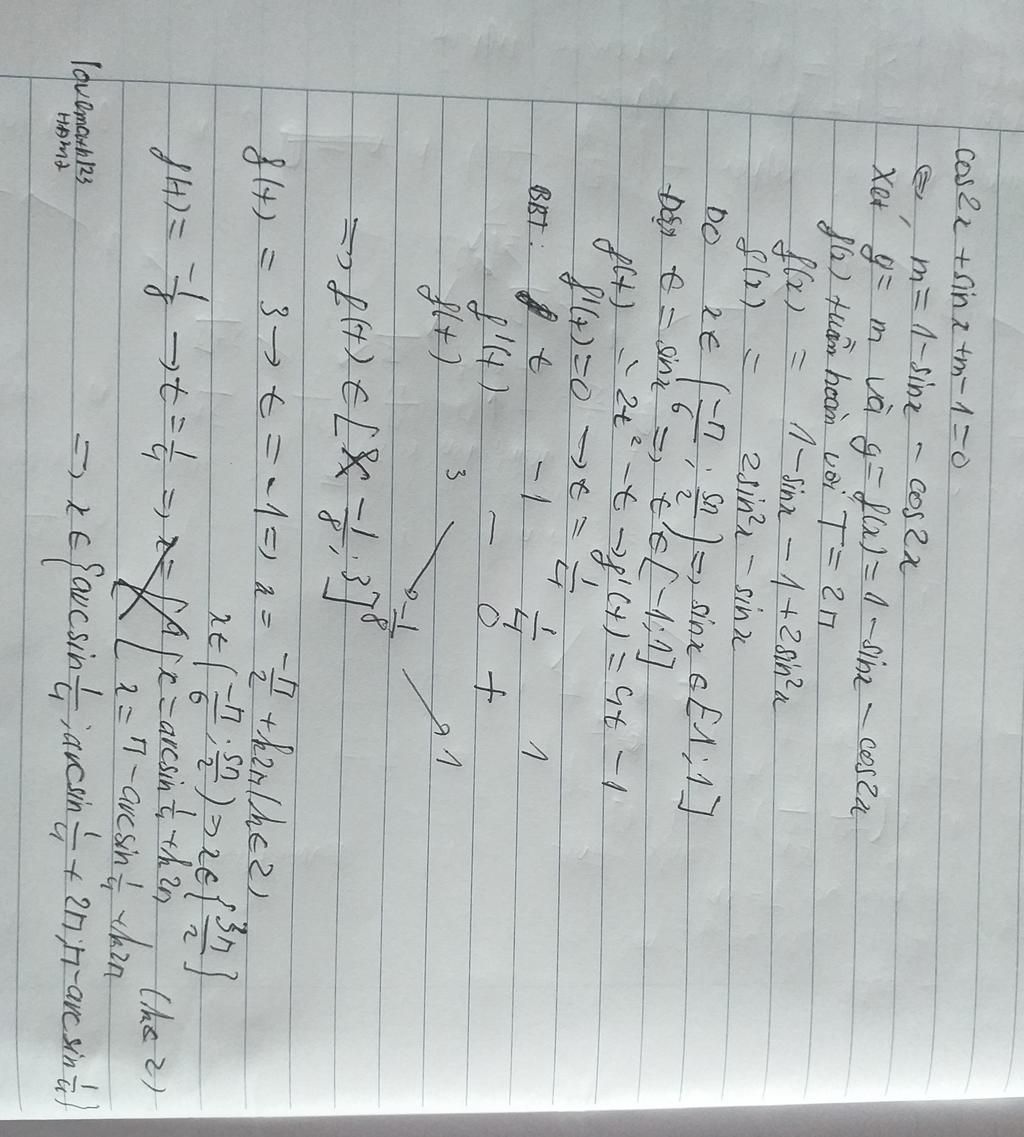 cos2x + sinx + m - 1 = 0
⇔ m = 1 - sinx - cos2x
Xét y = m và y = f(x) = 1 - sinx - cos2x
f(x) tuần hoàn với T = 2π
f(x) = 1 - sinx - 1 + 2sin²x
f(x) = 2sin²x - sinx
Do x ∈ (-π/6 ; 5π/2) => sinx ∈ [-1; 1]
Đặt t = sinx => t ∈ [-1; 1]
f(t) = 2t² - t → f'(t) = 4t - 1
f'(t) = 0 → t = 1/4
BBT: t -1 1/4 1
f'(t) - 0 +
f(t) 3 ↘ -1/8 ↗ 1
=> f(t) ∈ [-1/8 ; 3]
f(t) = 3 → t = -1 => x = -π/2 + k2π (k ∈ Z)
x ∈ (-π/6 ; 5π/2) => x ∈ {3π/2}
f(t) = -1/8 → t = 1/4 => [ x = arcsin 1/4 + k2π
[ x = π - arcsin 1/4 + k2π (k ∈ Z)
=> x ∈ {arcsin 1/4 ; arcsin 1/4 + 2π ; π - arcsin 1/4}
lovemath123
HĐM2